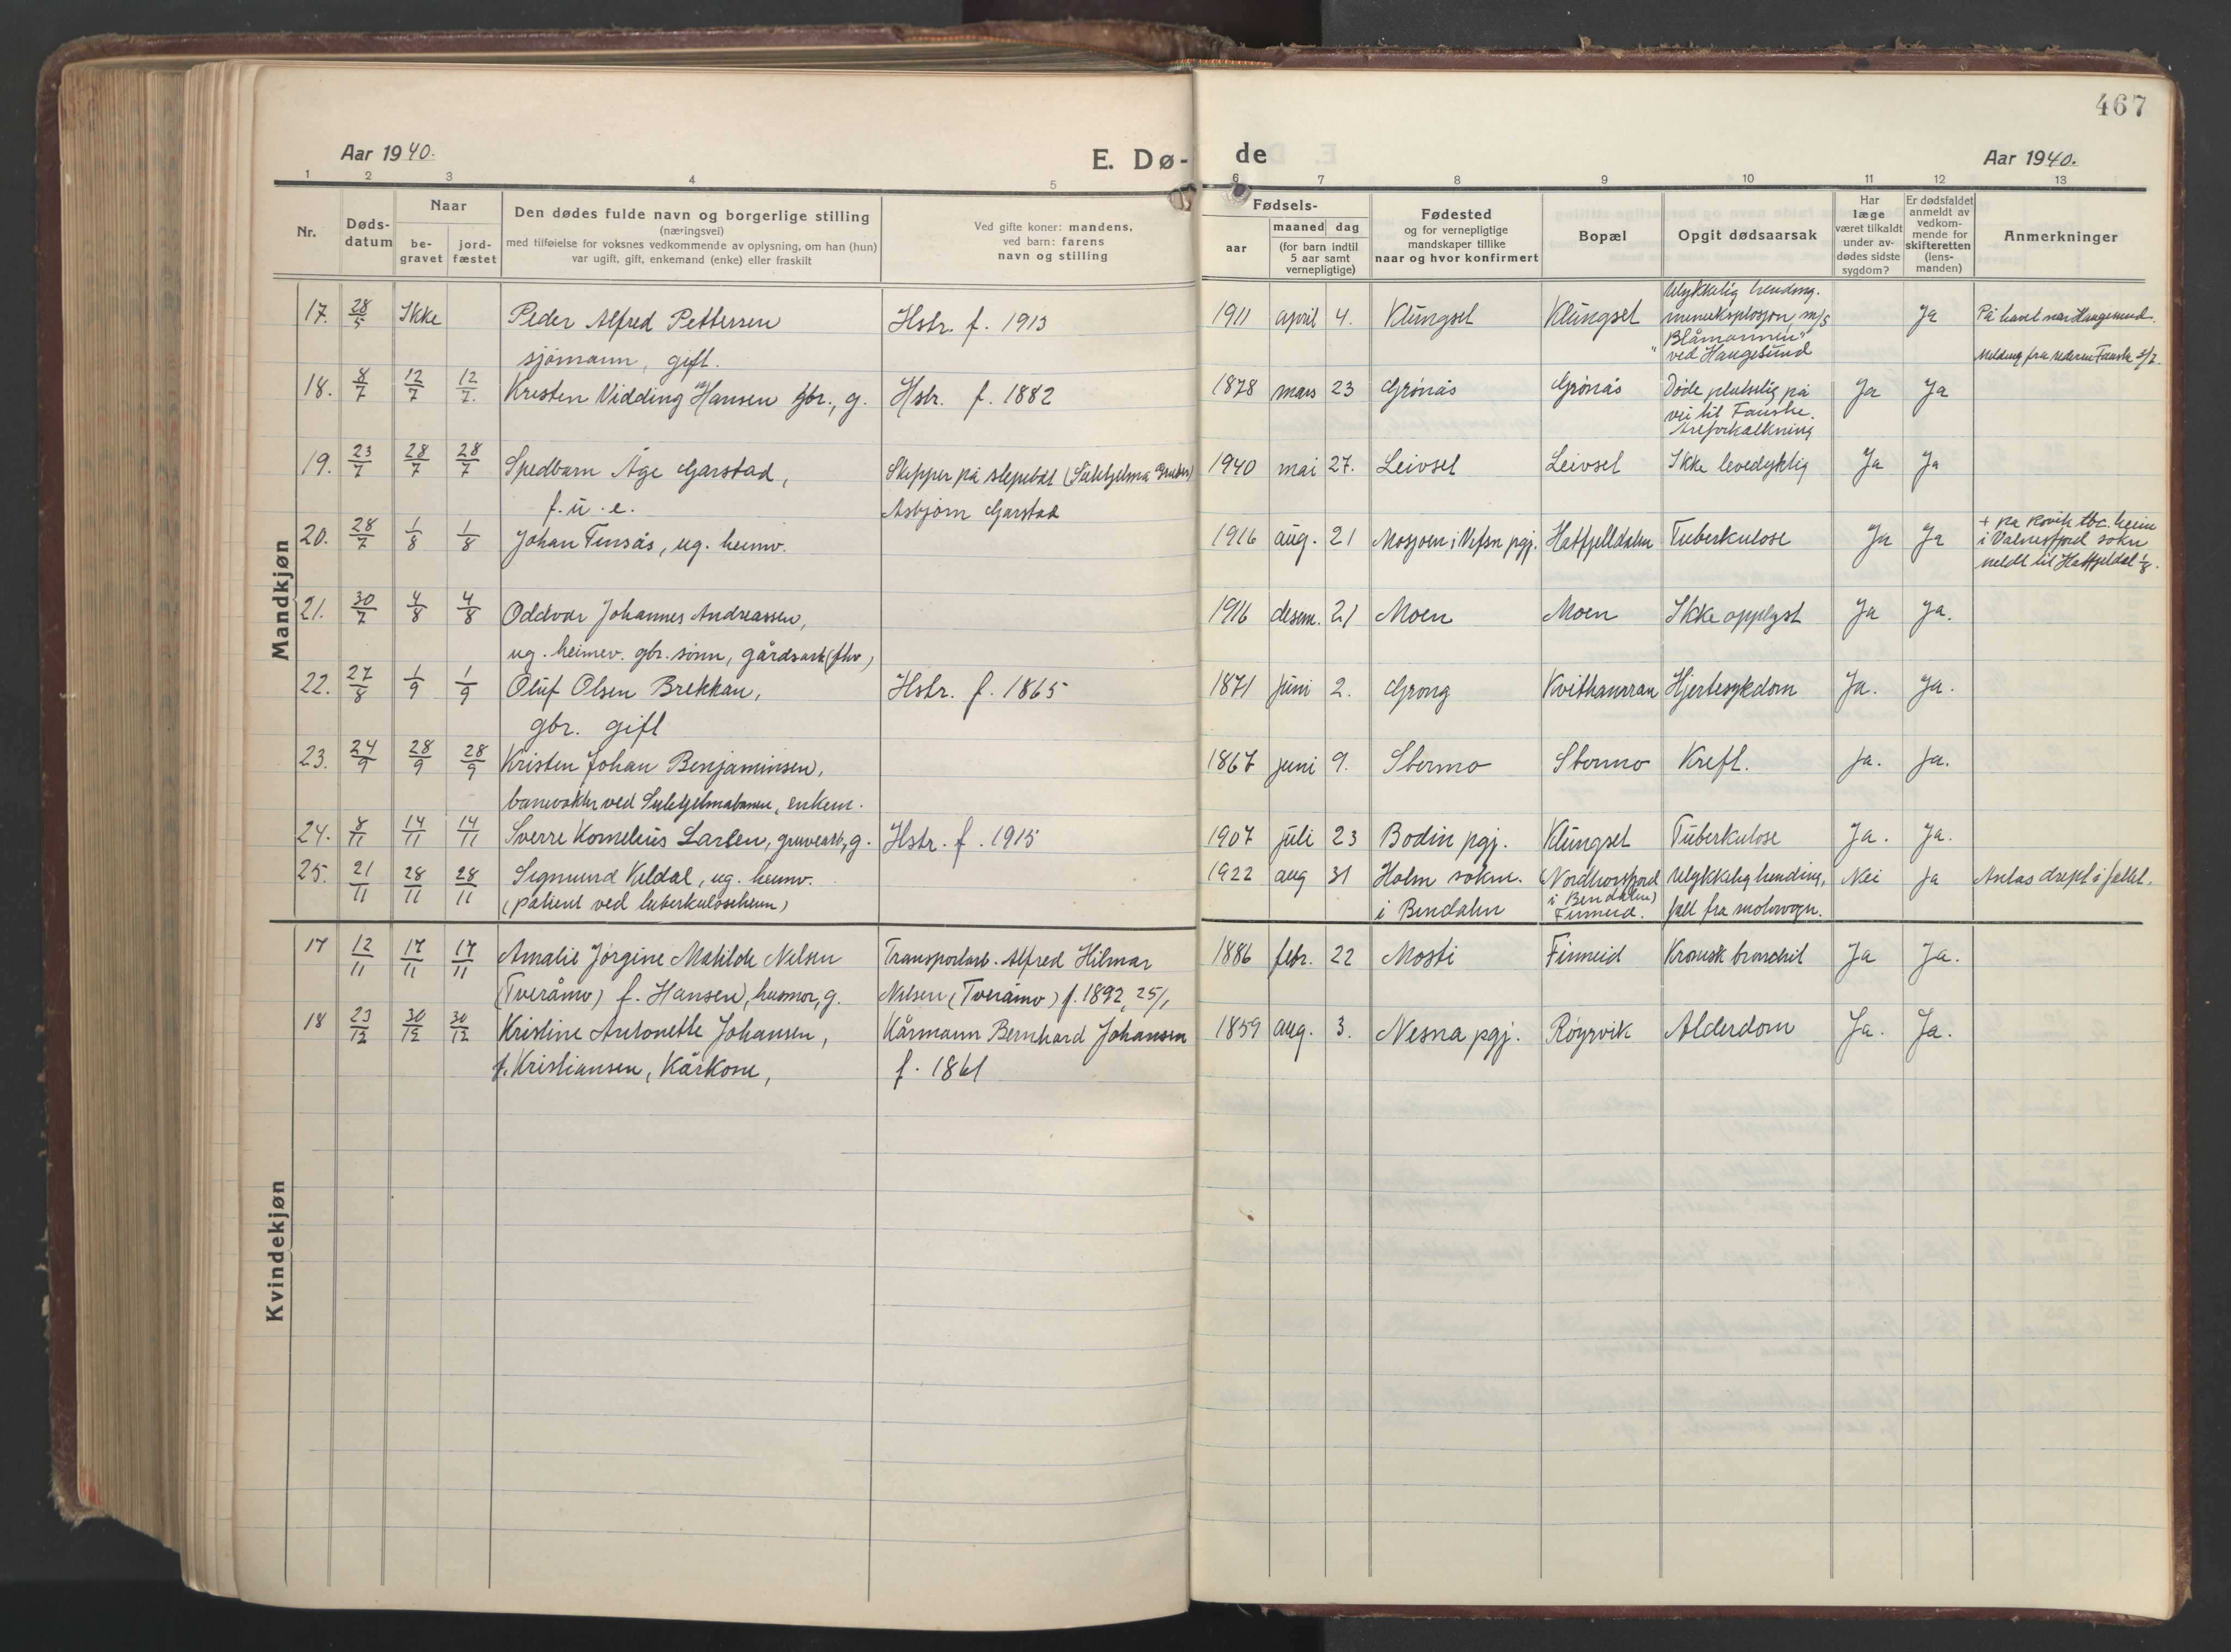 467
Aar 1940.
E. Dø-
de
Aar 1940.
1 2 3 4 5 6 7 8 9 10 11 12 13
Nr.
Døds-
datum
Naar
be-
gravet
jord-
fæstet
Den dødes fulde navn og borgerlige stilling
(næringsvei)
med tilføielse for voksnes vedkommende av oplysning, om han (hun)
var ugift, gift, enkemand (enke) eller fraskilt
Ved gifte koner: mandens,
ved barn: farens
navn og stilling
Fødsels-
aar
maaned dag
(for barn indtil
5 aar samt
vernepligtige)
Fødested
og for vernepligtige
mandskaper tillike
naar og hvor konfirmert
Bopæl
Opgit dødsaarsak
Har
læge
været tilkaldt
under av-
dødes sidste
sygdom?
Er dødsfaldet
anmeldt av
vedkom-
mende for
skifteretten
(lens-
manden)
Anmerkninger
Mandkjøn
17. 28/5 Ikke Peder Alfred Pettersen Hstr. f. 1913 1911 april 4. Klungset Klungset Ulykkelig hending. Ja På havet nær Haugesund.
mineeksplosjon, m/s
sjømann, gift. "Blåmannen"
ved Haugesund Melding fra rederen Fauske 2/7.
18. 8/7 12/7 12/7. Kristen Vidding Hansen gbr., g. Hstr. f. 1882 1878 mars 23 Grønås Grønås Døde plutselig på Ja Ja
vei til Fauske.
Areforkalkning
19. 23/7 28/7 28/7 Spedbarn Åge Garstad, Skipper på slepebåt (Sulitjelma Gruber) 1940 mai 27. Leivset Leivset Ikke levedyktig Ja Ja
f. u. e. Asbjørn Garstad
20. 28/7 1/8 1/8 Johan Tensås, ug. heimv. 1916 aug. 21 Mosjøen i Vefsn pgj. Hatfjelldalen Tuberkulose Ja Ja + på Kosvik tbc. heim
i Valnesfjord sokn
meldt til Hatfjeldal 1/8.
21. 30/7 4/8 4/8 Oddvar Johannes Andreassen, 1916 desem. 21 Moen Moen Ikke opplyst Ja Ja.
ug. heimev. gbr. sønn, gårdsarb.
22. 27/8 1/9 1/9 Oluf Olsen Brekkan, Hstr. f. 1865 1871 juni 2. Grong Kvithammran Hjertesykdom Ja. Ja.
gbr. gift
23. 24/9 28/9 28/9 Kristen Johan Benjaminsen, 1867 juni 9. Stormo Stormo Kreft. Ja. Ja.
banevokter ved Sulitjelmabanen, enkem.
24. 8/11 14/11 14/11 Sverre Kornelius Larsen, gruvearb, g. Hstr. f. 1915 1907 juli 23 Bodin pgj. Klungset Tuberkulose Ja. Ja.
25. 21/11 28/11 28/11 Sigmund Keldal, ug. heimv. 1922 aug 31 Holm sokn. (Nordhorsfjord Ulykkelig hending, Nei Ja Antas drept i fallet.
(patient ved tuberkuloseheim) i Bindalen i Bindalen)
Finneid. fall fra motorvogn.
Kvindekjøn
17 12/11 17/11 17/11 Amalie Jørgine Matilde Nilsen Transportarb. Alfred Hilmar 1886 febr. 22 Mosti Finneid Kronisk bronchit Ja Ja.
(Tveråmo) f. Hansen, husmor, g. Nilsen (Tveråmo) f. 1892, 25/1
18 23/12 30/12 30/12 Kristine Antonette Johansen, Kårmann Bernhard Johansen 1859 aug. 3. Nesna pgj. Røyrvik Alderdom Ja. Ja.
f. Kristiansen, Kårkone, f. 1861